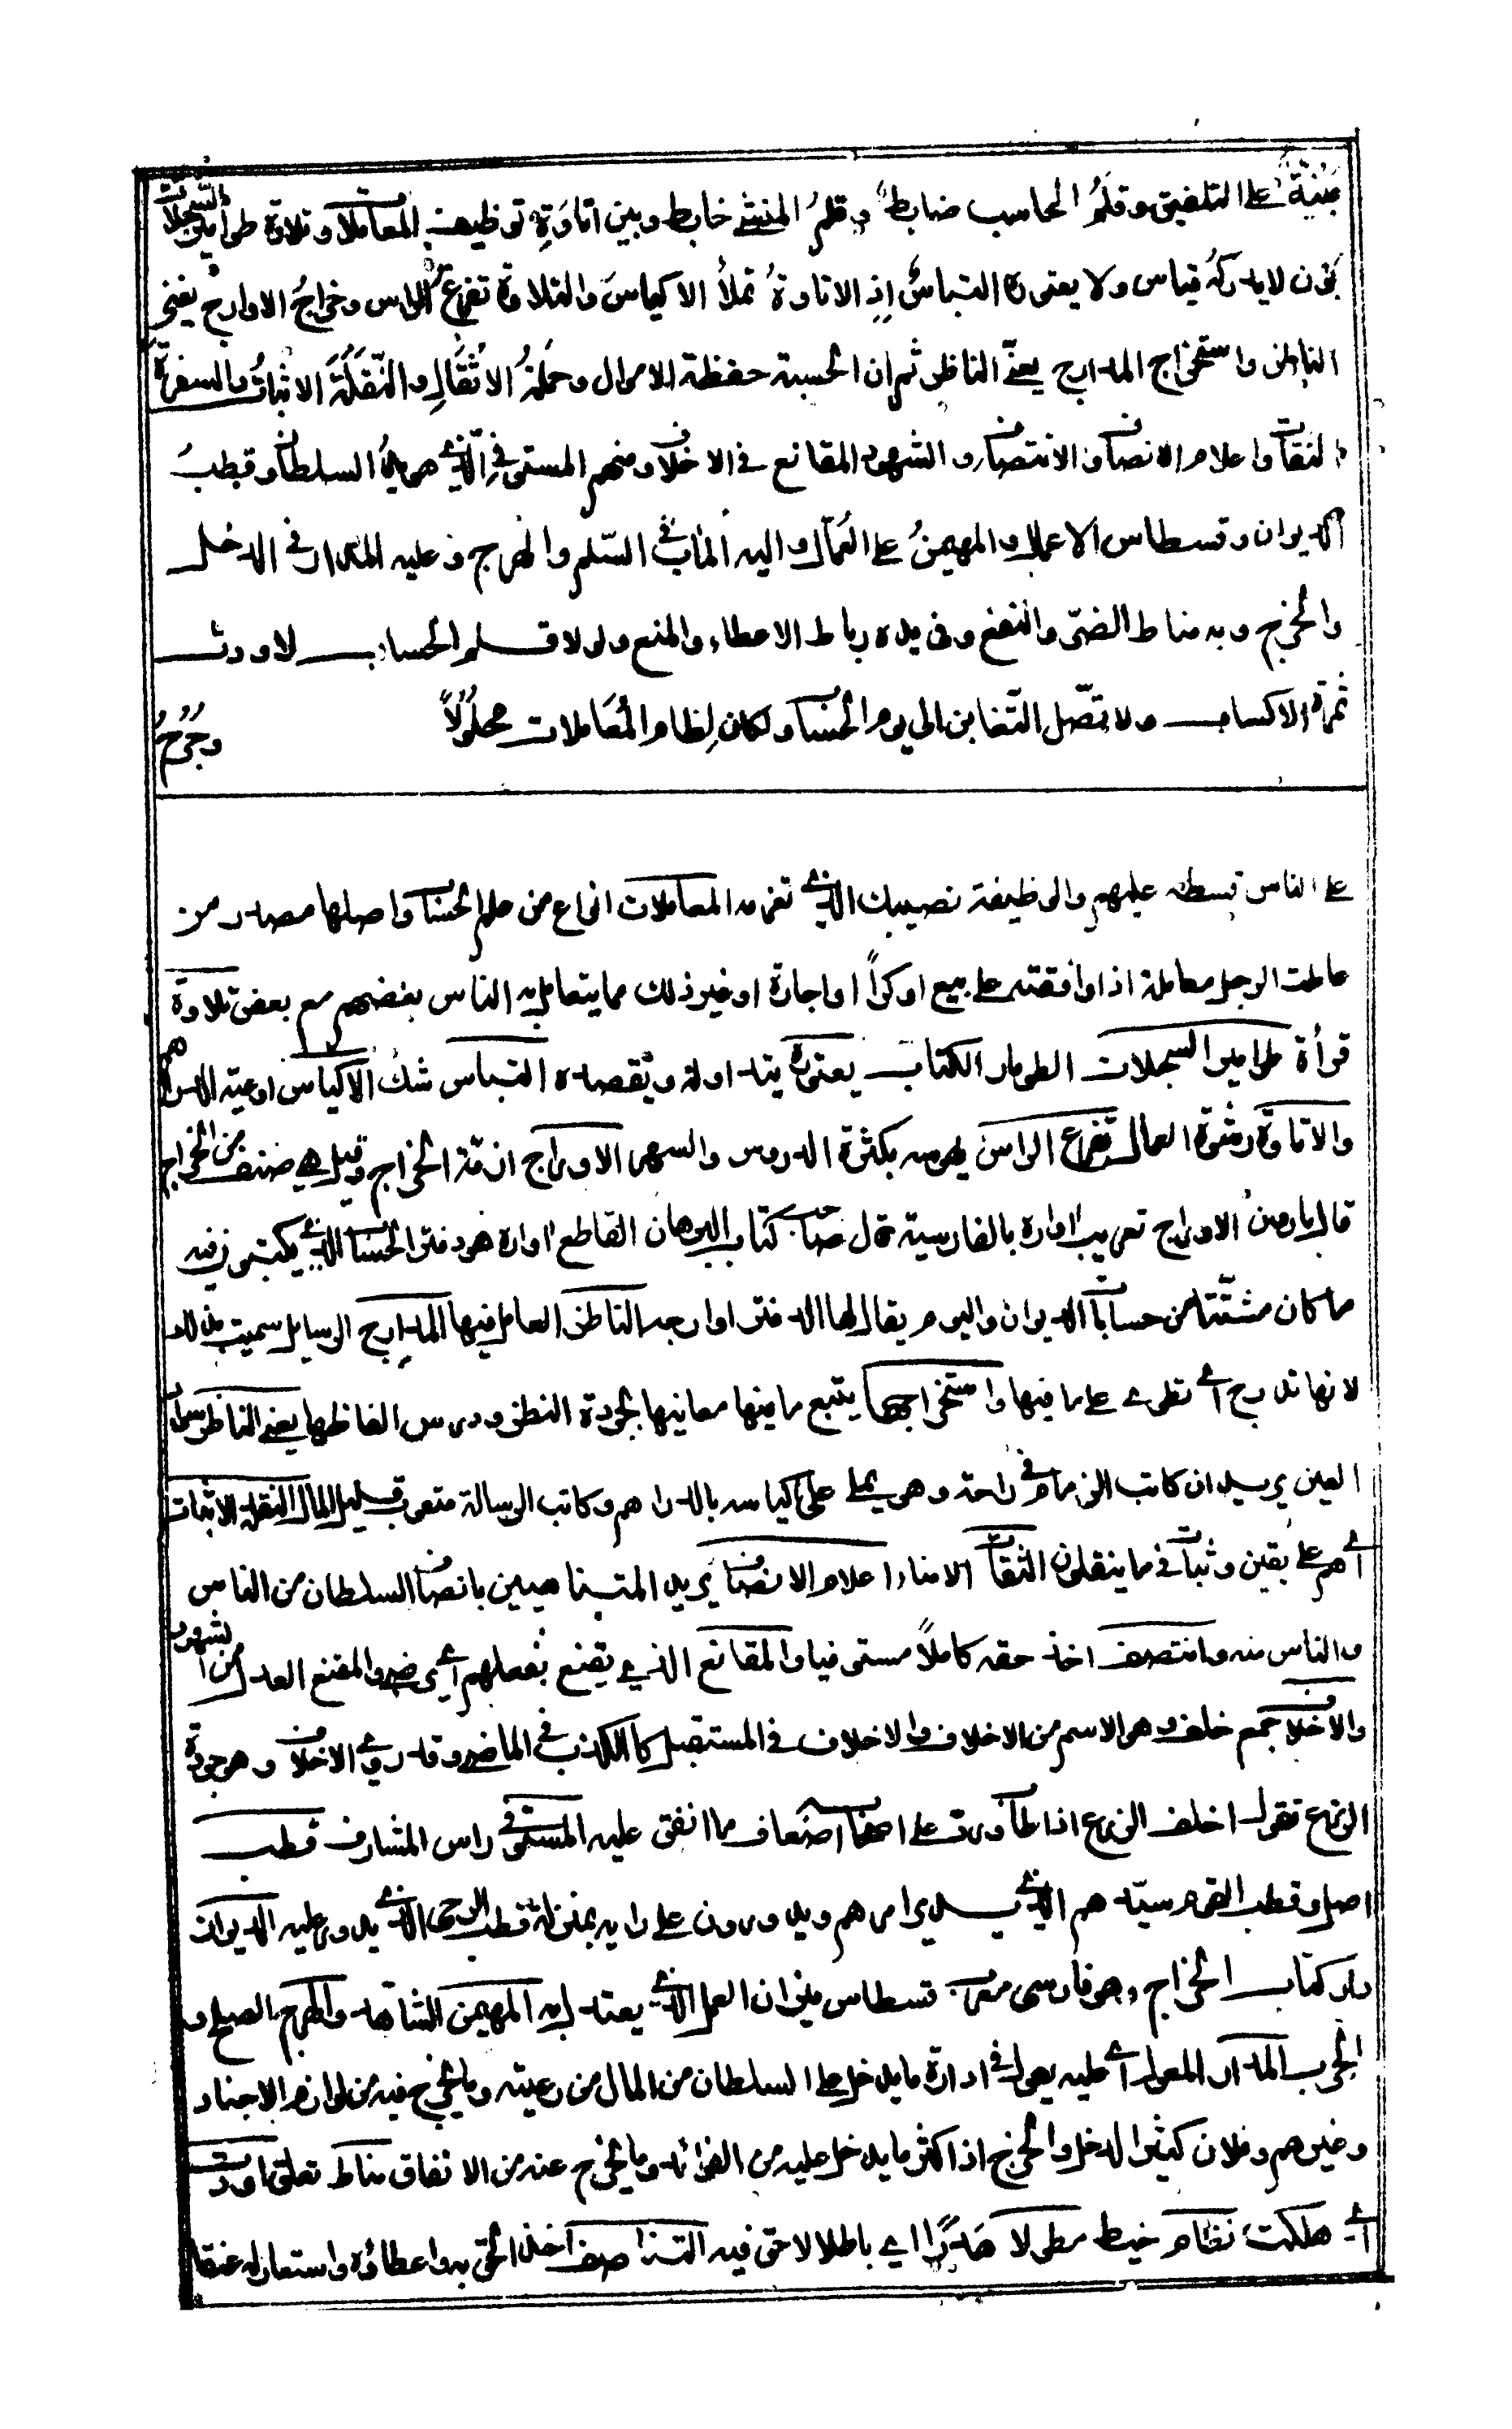 مبنية على التلفيق وقلم الحاسب ضابط وقلم المنشئ خابط وبين اتاوة توظيف المعاملات وتلاوة طوامير السجلات
بون لا يدركه قياس ولا يعتوره التباس إذ الاتاوة تملأ الاكياس والتلاوة تفرغ الراس وخراج الاوارج يغني
الناظر واستخراج المدارج يعنّي الناظر ثم ان الحسبة حفظة الاموال وحملة الاثقال والنقلة الاثبات والسفرة
الثقات واعلام الانصاف والانتصاف والشهود المقانع في الاختلاف ومنهم المستوفي الذي هو يد السلطان وقطب
الديوان وقسطاس الاعمال والمهيمن على العمال واليه المآب في السلم والهرج وعليه المدار في الدخل
والخرج وبه مناط الضر والنفع وفي يده رباط الاعطاء والمنع ولولا قلم الحساب لاودت
ثمرة الاكتساب ولاتصل التغابن الى يوم الحساب ولكان نظام المعاملات محلولا وجرح
على الناس قسطه عليهم والوظيفة نصيبك الذي تغرمه المعاملات انواع من علم الحساب واصلها مصدر من
عاملت الرجل معاملة اذا وافقته على بيع او كرا او اجارة او غير ذلك مما يتعامل به الناس بعضهم مع بعض تلاوة
قرأة طوامير السجلات الطومار الكتاب يعتوره يتداوله ويقصده التباس شك الاكياس اوعية الدراهم
والاتاوة رشوة العمال تفرغ الراس بكثرة الدروس والسهر الاوارج ازمة الخراج وقيل هي صنف من الخراج
قال الاوارج تعريب اواره بالفارسية قال صاحب كتاب البرهان القاطع اواره هو دفتر الحساب الذي يكتبون فيه
ما كان مشتتا من حسابات الديوان واليوم يقال لها الدفتر اوارجه الناظر العامل فيها المدارج الرسايل سميت بذلك
لانها تدرج اي تطوى على ما فيها واستخراجها يتبع ما فيها معانيها بجودة النظر ودرس الفاظها يعني الناظر سواد
العين يريد ان كاتب الزمام في راحة وهو يملى على اكياسه بالدراهم وكاتب الرسالة متعوب قليل المال النقلة الاثبات
اي هم على يقين وثبات في ما ينقلون الثقات الامناء اعلام الانصاف يريد المتناهيين بانصاف السلطان من الناس
والناس منه وانتصف اخذ حقه كاملا مستوفيا والمقانع الذي يقنع بفعلهم اي يرضى والمقنع العدل من الشهود
والاخلاف جمع خلف وهو الاسم من الاخلاف والاخلاف في المستقبل كالكذب في الماضي وقد روي الاخلاف وهو جودة
الزرع تقول اخلف الزرع اذا على اضعاف ما انفق عليه المستوفي راس المشارف قطب
اصل وقطب القوم سيدهم الذي يدبر امرهم ويدورون على رايه بمنزلة قطب الرحى الذي يدور عليه الديوان
دار كتاب الخراج وهو فارسي معرب قسطاس ميزان العمل الذي يعتدل به المهيمن الشاهد والهرج الصلح و
الحرب المدار المعول اي عليه يعول في ادارة ما يدخل على السلطان من المال من رعيته وما يخرج فيه من لوازم الاجناد
وغيرهم وفلان كثير الدخل والخرج اذا كثر ما يدخل عليه من الفوائد وما يخرج عنه من الانفاق مناط تعلق اودت
اي هلكت نظام خيط مطلولا هدرا اي باطلا لا حق فيه التناصف اخذ الحق به واعطاؤه واستعار له عنقا